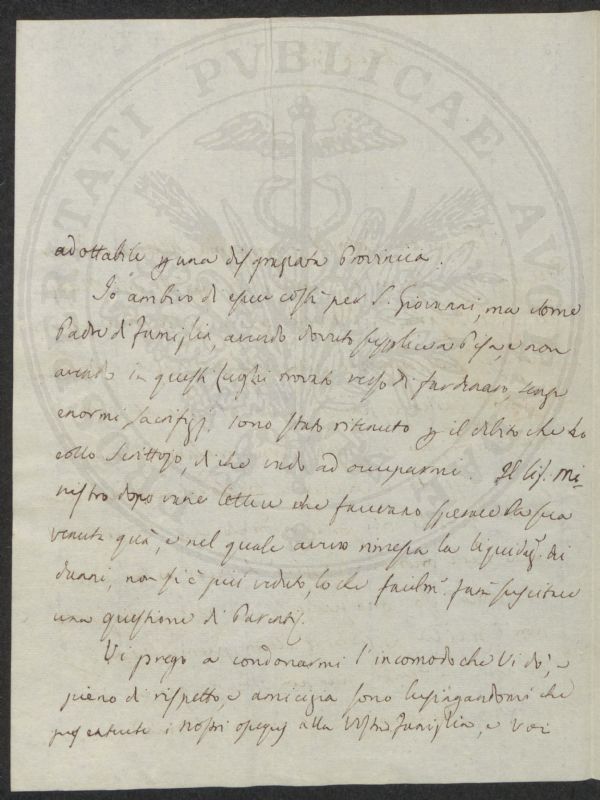 PROSPERITATI PVBLICAE AVGENDAE
adottabile p una disgraziata Provincia.
Io ambivo di esser costì per S. Giovanni, ma come
Padre di Famiglia, avendo dovuto supplire a Pisa, e non
avendo in questi luoghi trovato verso di far denaro, senza
enormi sacrifizj sono stato ritenuto p il debito che ho
collo Scrittojo, di che vado ad occuparmi. Il Sig. Mi-
nistro dopo varie lettere che facevano sperare la sua
venuta quà, e nel quale avevo rimessa la liquidaz. dei
danni, non si è più veduto, lo che facilm. farà suscitare
una questione di
Vi prego a condonarmi l'incomodo che Vi dò, e
pieno di rispetto, e amicizia sono lusingandomi che
i nostri ossequj alla Vostra Famiglia, e Voi